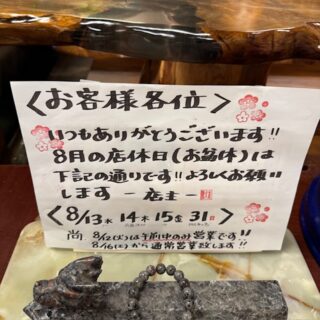 <お客様各位>
いつもありがとうございます!!
8月の店休日(お盆休)は
下記の通りです!!よろしくお願い
します －店主－
<8/13水 14木 15金 31日>
尚 8/12(火)は午前中のみ営業です!!
8/16(土)から通常営業致します!!